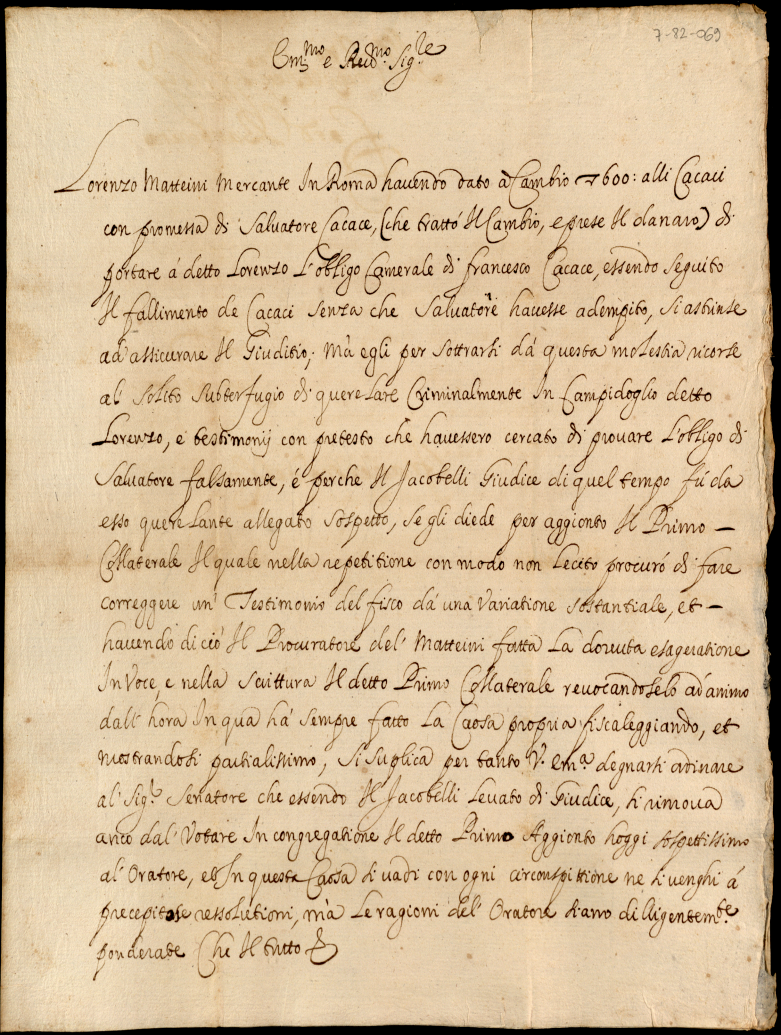 7-82-069
Em.mo e Reud.mo Sig.le
Lorenzo Matteini Mercante In Roma hauendo dato à Cambio 600: alli Cacaci
con promessa di Saluatore Cacace, (che trattó Il Cambio, e prese Il danaro) di
portare á detto Lorenzo L'obligo Camerale di francesco Cacace, essendo seguito
Il fallimento de Cacaci senza che Saluatore hauesse adempito, si astrinse
ad assicurare Il Giuditio; Mà egli per sottrarsi dá questa molestia ricorse
al solito subterfugio di querelare Criminalmente In Campidoglio detto
Lorenzo, e testimonij con pretesto che hauessero cercato di prouare L'obligo di
Saluatore falsamente, é perche Il Jacobelli Giudice di quel tempo fú da
esso querelante allegato sospetto, se gli diede per aggionto Il Primo –
Collaterale Il quale nella repetitione con modo non Lecito procuró di fare
correggere un' Testimonio del fisco dá una Variatione sostantiale, et –
hauendo di ció Il Procuratore del' Matteini fatta La douuta esageratione
In Voce, e nella scrittura Il detto Primo Collaterale reuocandoselo ad'animo
dall' hora In qua há sempre fatto La Caosa propria fiscaleggiando, et
mostrandosi partialissimo, si suplica per tanto V. em.a degnarsi ordinare
al' Sig.r Senatore che essendo Il Jacobelli Leuato di Giudice, si rimoua
anco dal' Votare In congregatione Il detto Primo Aggionto hoggi sospettissimo
al' Oratore, et In questa Caosa si uadi con ogni circonspittione ne si uenghi á
precepitose ressolutioni, mà Le ragioni del' Oratore siano diligentem.te
ponderate Che Il tutto &